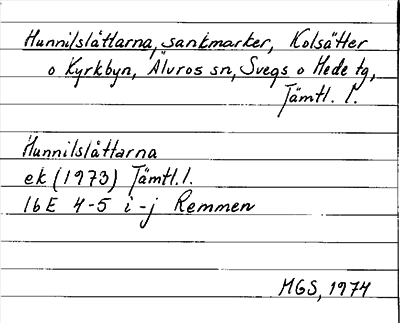 Hunnilslåttarna, sankmarker, Kolsätter
o Kyrkbyn, Älvros sn, Svegs o Hede tg,
Jämtl. l.
Hunnilslåttarna
ek (1973) Jämtl. l.
16E 4-5 i-j Remmen
MGS, 1974